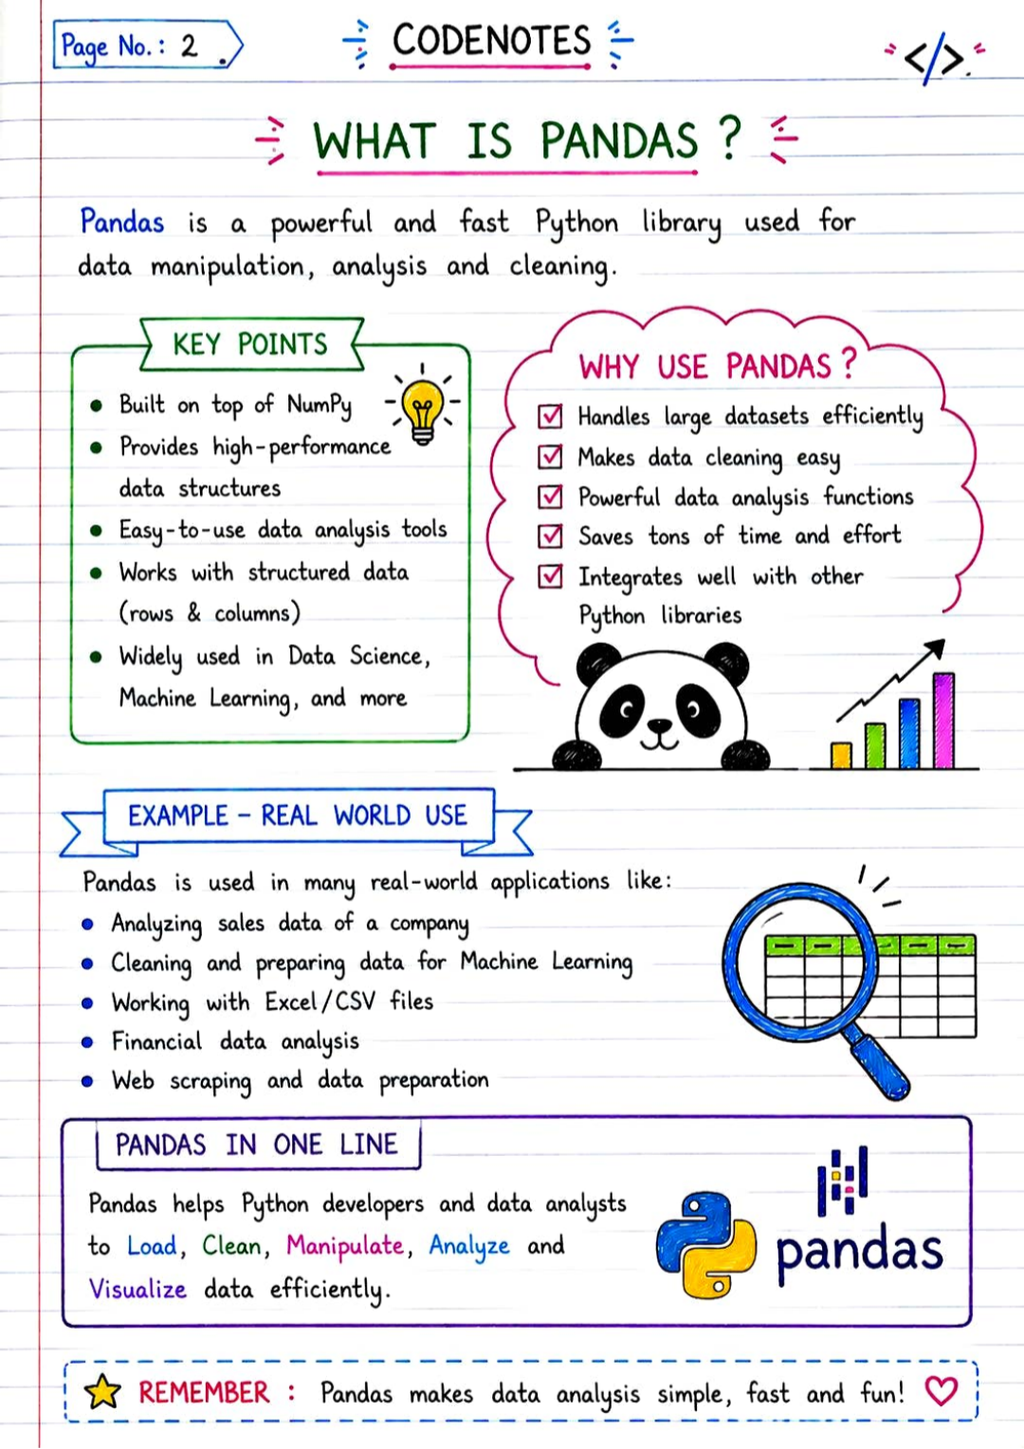 Page No.: 2
CODENOTES
</>
WHAT IS PANDAS ?
Pandas is a powerful and fast Python library used for
data manipulation, analysis and cleaning.
KEY POINTS
Built on top of NumPy
Provides high-performance
data structures
Easy-to-use data analysis tools
Works with structured data
(rows & columns)
Widely used in Data Science,
Machine Learning, and more
WHY USE PANDAS ?
Handles large datasets efficiently
Makes data cleaning easy
Powerful data analysis functions
Saves tons of time and effort
Integrates well with other
Python libraries
EXAMPLE - REAL WORLD USE
Pandas is used in many real-world applications like:
Analyzing sales data of a company
Cleaning and preparing data for Machine Learning
Working with Excel/CSV files
Financial data analysis
Web scraping and data preparation
PANDAS IN ONE LINE
Pandas helps Python developers and data analysts
to Load, Clean, Manipulate, Analyze and
Visualize data efficiently.
pandas
REMEMBER : Pandas makes data analysis simple, fast and fun!